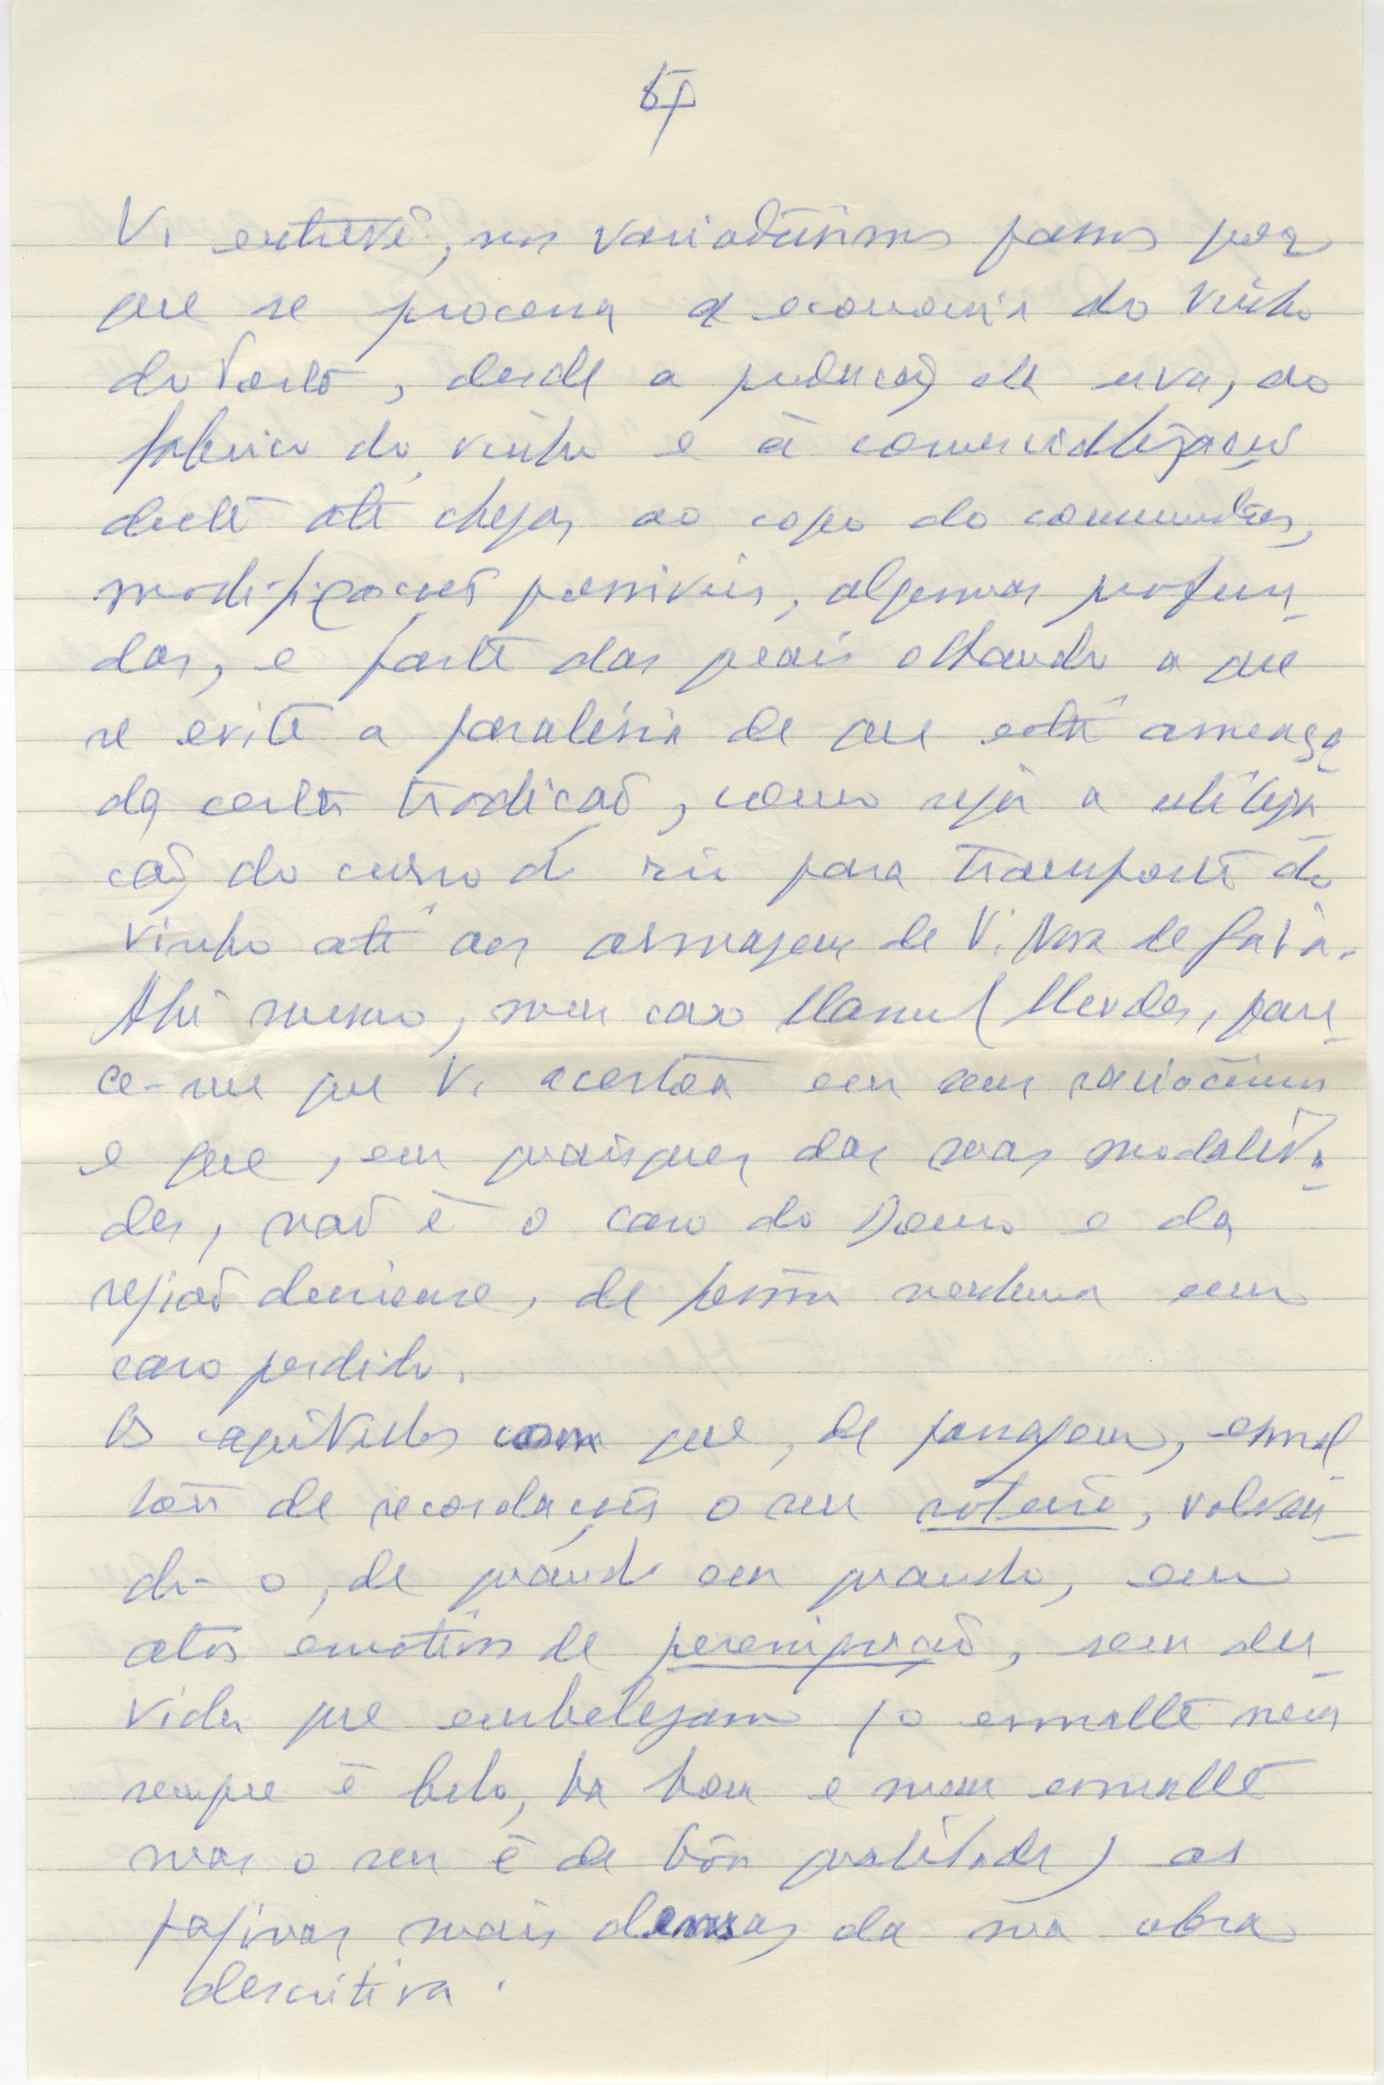 V. entrevê, nos variadíssimos passos por
que se processa a economia do vinho
do Porto, desde a produção da uva, do
fabrico do vinho e à comercialização
deste até chegar ao copo do consumidor,
modificações possíveis, algumas profun-
das, e parte das quais olhando a que
se evite a paralisia de que está ameaça-
da certa tradição, como seja a utiliza
ção do curso do rio para transporte do
vinho até aos armazens de V. Nova de Gaia.
Ahi mesmo, meu caro Manuel Mendes, pare-
ce-me que V. acertou em seus raciocinios
e que, em quaisquer das suas modalida-
des, não é o caso do Douro e da
região duriense, de forma nenhuma um
caso perdido.
Os capítulos com que, de passagem, esmal
tou de recordações o seu roteiro, volven-
do-o, de quando em quando, em
atos emotivos de peregrinação, sem du-
vida que embelezam (o esmalte nem
sempre é belo, ha bom e mau esmalte
mas o seu é de bôa qualidade) as
paginas mais densas da sua obra
descritiva.